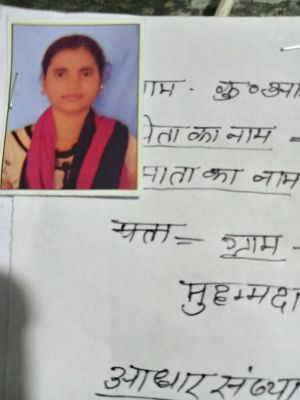 नाम. कु० आ
पिता का नाम =
माता का नाम
पता = ग्राम -
मुहम्मदा
आधार संख्या